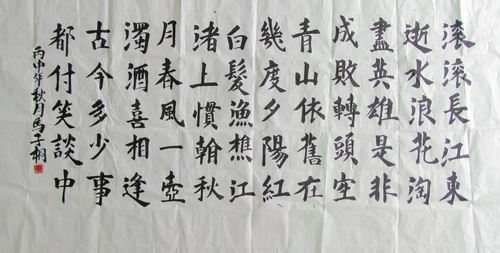 滚滚長江東
逝水浪花淘
盡英雄是非
成敗轉頭空
青山依舊在
幾度夕陽紅
白髮漁樵江
渚上慣翰秋
月春風一壺
濁酒喜相逢
古今多少事
都付笑談中
丙申年秋月馬子